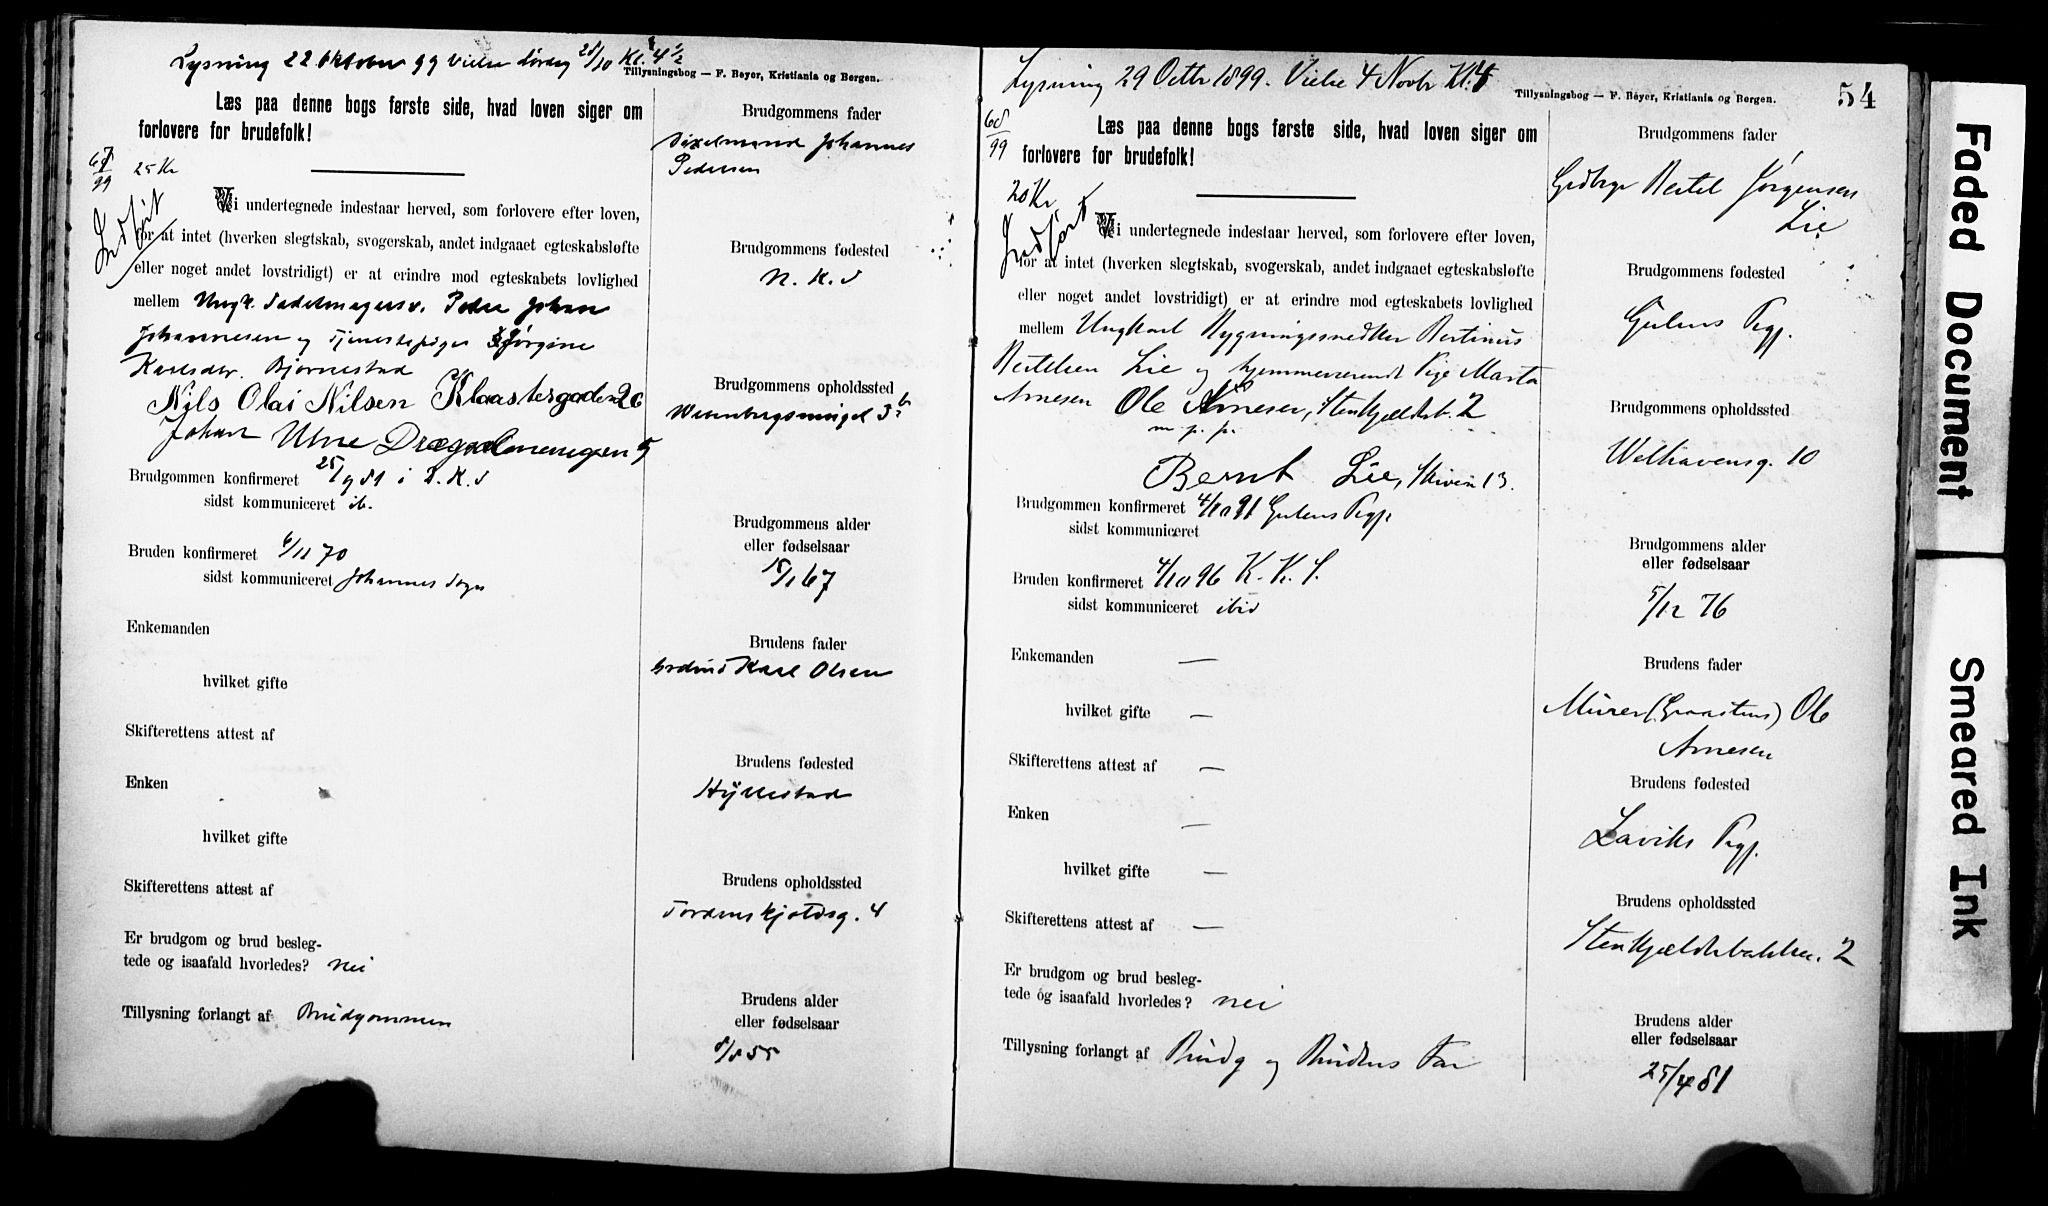 Lysning 22 Oktober 99 Vielse lørdag 28/10 Kl. 4 1/2
Tillysningsbog — F. Beyer, Kristiania og Bergen.
Læs paa denne bogs første side, hvad loven siger om
forlovere for brudefolk!
67/99
25 Kr
Indført
Vi undertegnede indestaar herved, som forlovere efter loven,
for at intet (hverken slegtskab, svogerskab, andet indgaaet egteskabsløfte
eller noget andet lovstridigt) er at erindre mod egteskabets lovlighed
mellem Ungk. Sadelmagersv. Peder Johan
Johannesen og Tjenestepige Jørgine
Karlsdtr. Bjørnestad
Nils Olai Nilsen Klaastergaden 26
Johan
Brudgommen konfirmeret 25/9 81 i D. K. S
sidst kommuniceret ib.
Bruden konfirmeret 6/11 70
sidst kommuniceret Johannes Sogn
Enkemanden
hvilket gifte
Skifterettens attest af
Enken
hvilket gifte
Skifterettens attest af
Er brudgom og brud besleg-
tede og isaafald hvorledes? nei
Tillysning forlangt af Brudgommen
Brudgommens fader
Johannes
Pedersen
Brudgommens fødested
N. K. S
Brudgommens opholdssted
3 b
Brudgommens alder
eller fødselsaar
18/1 67
Brudens fader
Karl Olsen
Brudens fødested
Hyllestad
Brudens opholdssted
Tordenskjoldsg. 4
Brudens alder
eller fødselsaar
8/8 55
Lysning 29 Octb 1899. Vielse 4 Novbr Kl. 4
Tillysningsbog — F. Beyer, Kristiania og Bergen.
54
68/99
Læs paa denne bogs første side, hvad loven siger om
forlovere for brudefolk!
20 Kr
Indført
Vi undertegnede indestaar herved, som forlovere efter loven,
for at intet (hverken slegtskab, svogerskab, andet indgaaet egteskabsløfte
eller noget andet lovstridigt) er at erindre mod egteskabets lovlighed
mellem Ungkarl Bygningssnedker Bertinus
Bertelsen Lie og hjemmeværende Pige Marta
Arnesen Ole Arnesen, Stenkjeldrb. 2
m. p. p.
Bernt Lie, Skiven 13.
Brudgommen konfirmeret 4/10 91 Gulens Prgj.
sidst kommuniceret
Bruden konfirmeret 4/10 96 K. K. S.
sidst kommuniceret ibid
Enkemanden —
hvilket gifte —
Skifterettens attest af —
Enken —
hvilket gifte —
Skifterettens attest af —
Er brudgom og brud besleg-
tede og isaafald hvorledes? nei
Tillysning forlangt af Brudg og Brudens Far
Brudgommens fader
Grdbrgr Bertel Jørgensen
Lie
Brudgommens fødested
Gulens Prgj.
Brudgommens opholdssted
Welhavensg. 10
Brudgommens alder
eller fødselsaar
5/12 76
Brudens fader
Murer (Graastens) Ole
Arnesen
Brudens fødested
Laviks Prgj.
Brudens opholdssted
Stenkjeldrbakken. 2
Brudens alder
eller fødselsaar
25/4 81
Faded Document
Smeared Ink